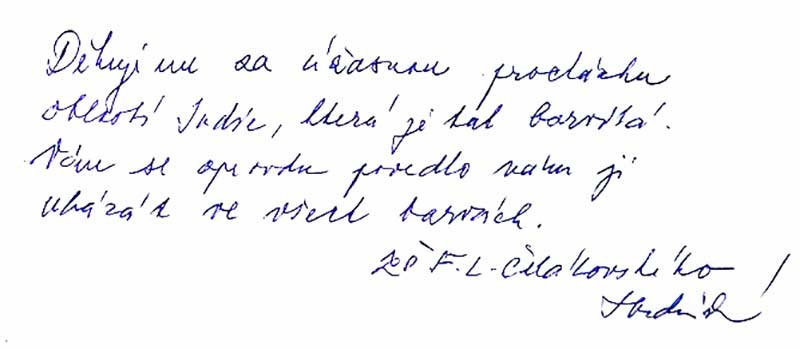 Děkujeme za úžasnou procházku
oblastí Indie, která je tak barvitá.
Vám se opravdu povedlo nám ji
ukázat ve všech barvách.
ZŠ F. L. Čelakovského